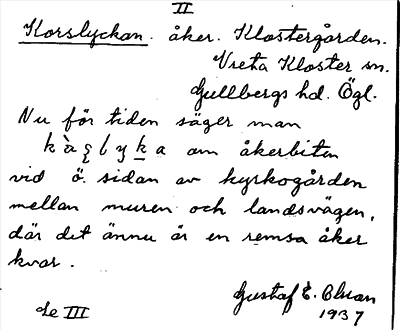 II
Korslyckan. åker. Klostergården.
Vreta Kloster sn.
Gullbergs hd. Ögl.
Nu för tiden säger man
om åkerbiten
vid ö. sidan av kyrkogården
mellan muren och landsvägen,
där det ännu är en remsa åker
kvar.
Gustaf E.
1937
Le III